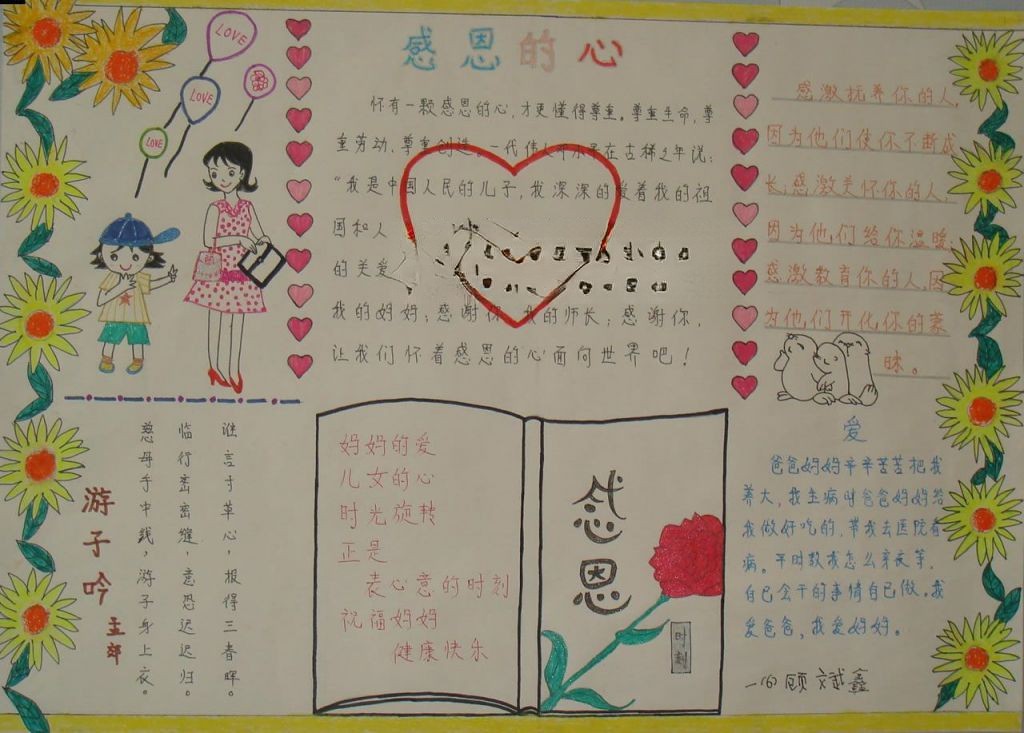 感恩的心
LOVE
LOVE
LOVE
怀有一颗感恩的心，才更懂得尊重。尊重生命，尊
重劳动，尊重创造。一代伟人邓小平在古稀之年说：
“我是中国人民的儿子，我深深的爱着我的祖
国和人
的关爱
我的妈妈；感谢你 我的师长；感谢你，
让我们怀着感恩的心面向世界吧！
感激抚养你的人，
因为他们使你不断成
长，感激关怀你的人，
因为他们给你温暖，
感激教育你的人，因
为他们开化你的蒙
昧。
游子吟
孟郊
慈母手中线，游子身上衣。
临行密密缝，意恐迟迟归。
谁言寸草心，报得三春晖。
妈妈的爱
儿女的心
时光旋转
正是
表心意的时刻
祝福妈妈
健康快乐
感恩
时刻
爱
爸爸妈妈辛辛苦苦把我
养大，我生病时爸爸妈妈给
我做好吃的，带我去医院看
病。平时教我怎么穿衣等，
自己会干的事情自己做。我
爱爸爸，我爱妈妈。
一(6)顾斌鑫